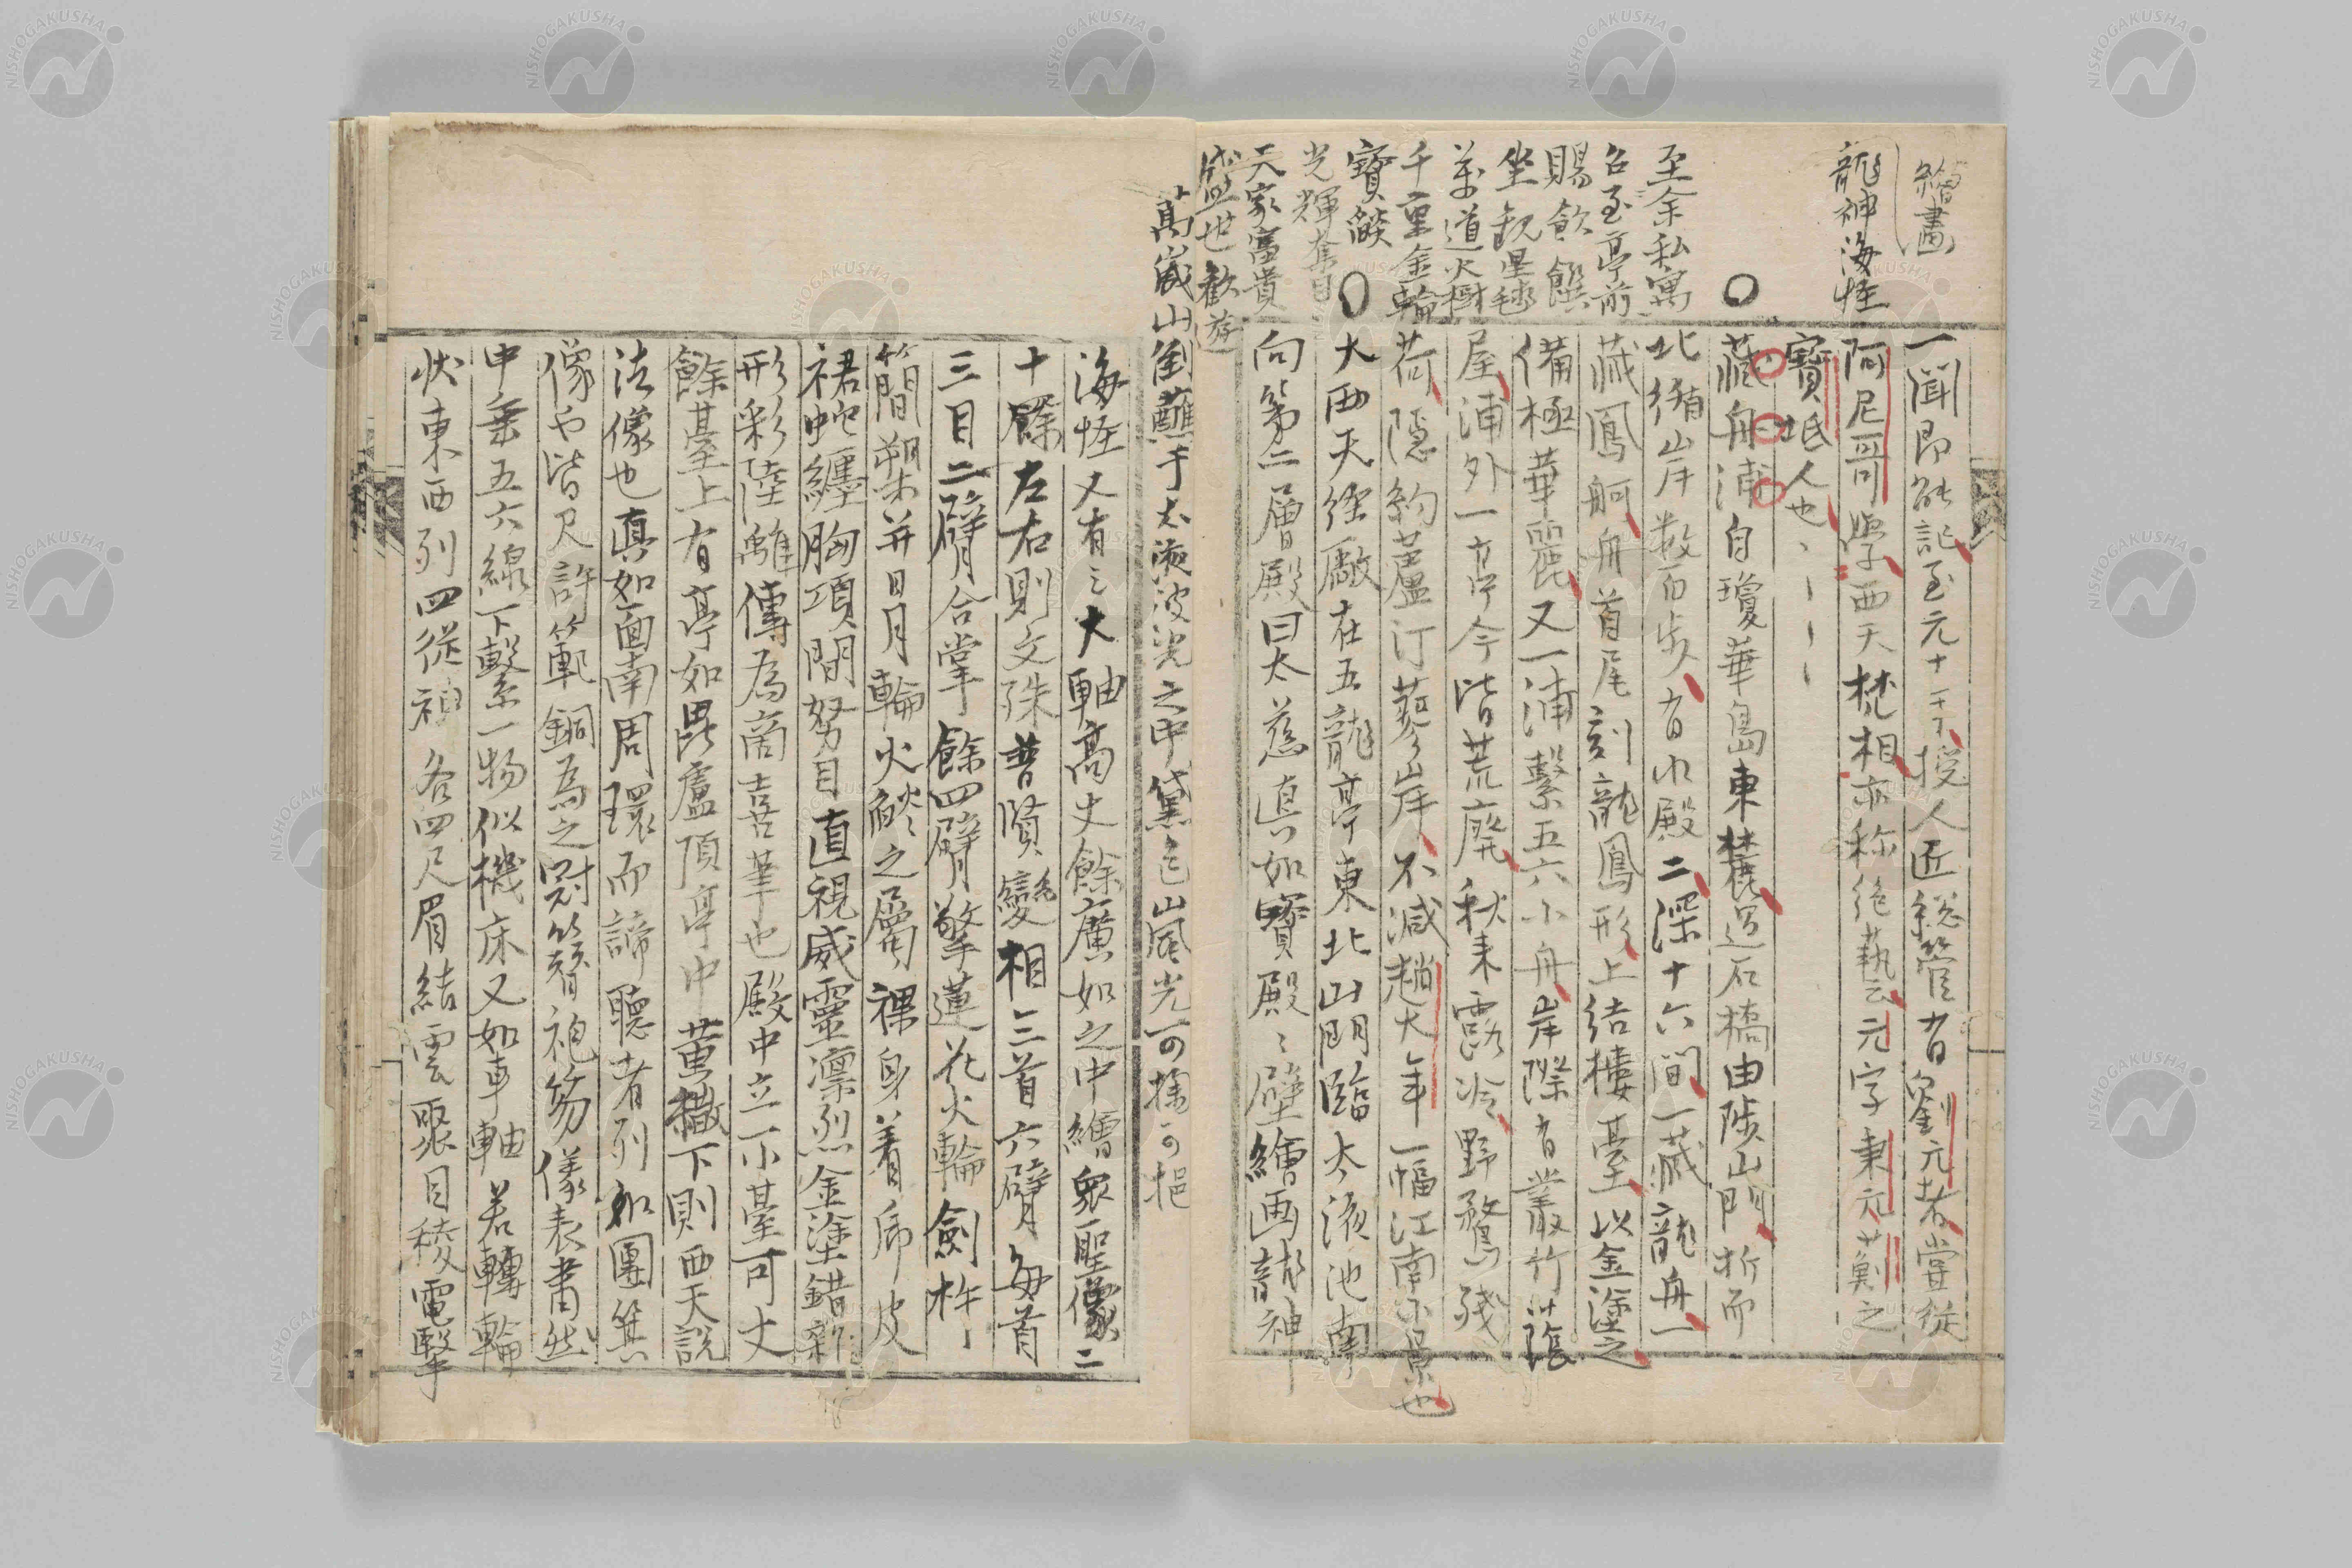 繪畫
龍神海怪
一聞即能記至元十一年授人匠総管有劉元者嘗從
阿尼哥學西天梵相亦称絶藝云元字秉元薊之
寶坻人也
藏舟浦自瓊華島東麓過石橋由陟山門折而
北循岸数百步有水殿二深十六間一藏龍舟一
藏鳳舸舟首尾刻龍鳳形上結樓臺以金塗之
備極華麗又一浦繫五六小舟岸際有叢竹蔭
屋浦外一亭今皆荒廢秋来露冷野鶩残
荷隠約蘆汀蓼岸不减趙大年一幅江南小景也
至余私寓
召至亭前
賜飲饌
坐観星毬
萬道火樹
千重金輪
寶燄
光輝奪目
天家富貴
盛世歡遊
大西天経廠在五龍亭東北山門臨太液池南
向第二層殿曰大慈真如寶殿殿壁繪画龍神
萬歲山倒蘸于太液波光之中黛色嵐光可掬可挹
海怪又有三大軸高丈餘廣如之中繪衆聖像二
十餘左右則文殊普賢變相三首六臂每首
三目二臂合掌餘四臂擎蓮花火輪劍杵
簡槊并日月輪火燄之屬裸身着虎皮
裙蛇纏胸項間努目直視威靈凛烈金塗錯新
形彩陸離傳為商喜筆也殿中立一小臺可丈
餘臺上有亭如毘盧頂亭中黄繖下則西天說
法像也真如面南周環而諦聽者列如團箕
像皆尺許範銅為之冠簪袍笏儀表肅然
中垂五六線下繫一物似機床又如車軸若轉輪
状東西列四從神各四尺眉結雲聚目稜電擊